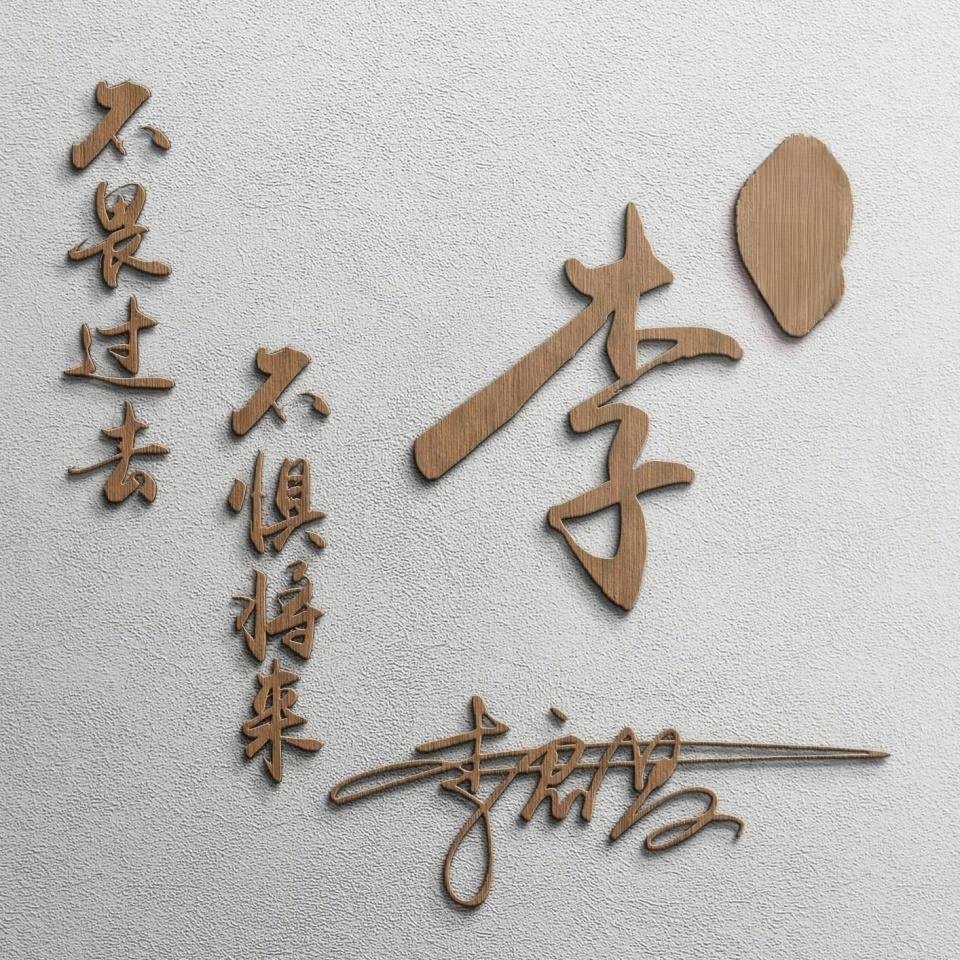 不畏过去
不惧将来
李